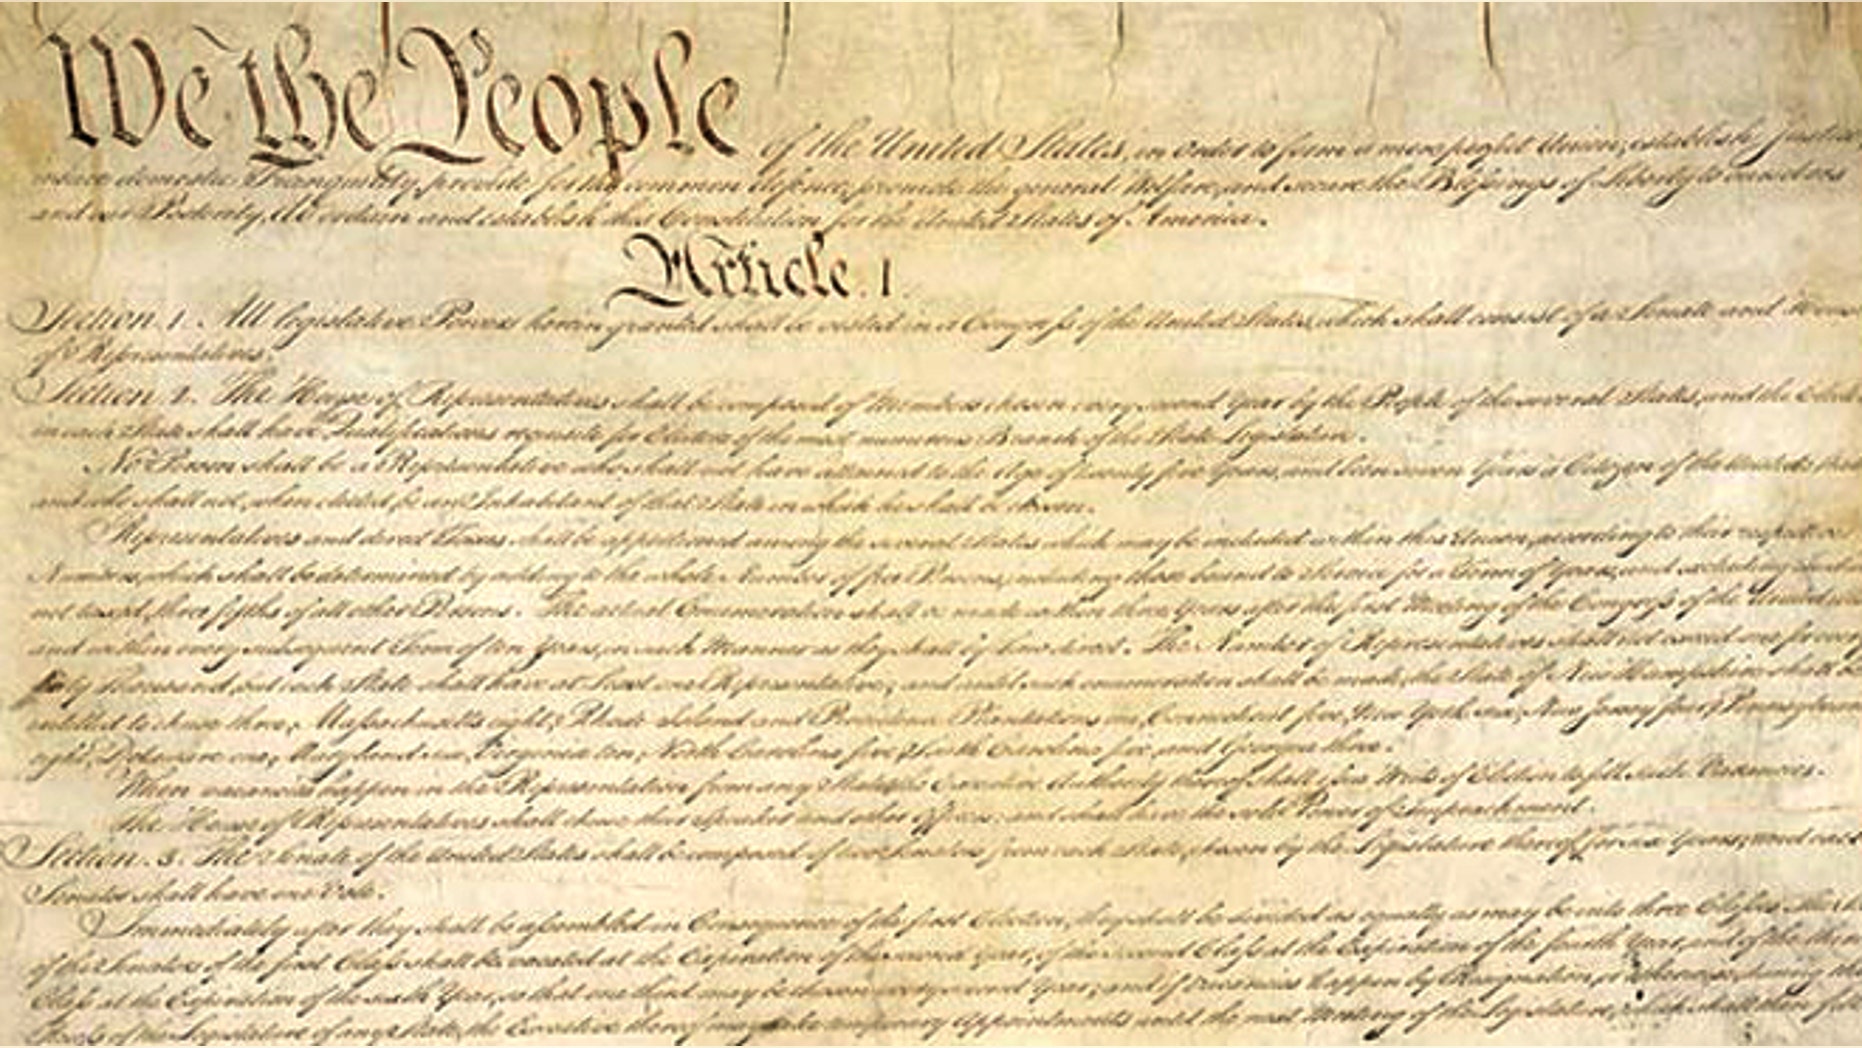 We the People of the United States, in Order to form a more perfect Union, establish Justice,
insure domestic Tranquility, provide for the common defence, promote the general Welfare, and secure the Blessings of Liberty to ourselves
and our Posterity, do ordain and establish this Constitution for the United States of America.
Article. I.
Section. 1. All legislative Powers herein granted shall be vested in a Congress of the United States, which shall consist of a Senate and House
of Representatives.
Section. 2. The House of Representatives shall be composed of Members chosen every second Year by the People of the several States, and the
in each State shall have Qualifications requisite for Electors of the most numerous Branch of the State Legislature.
No Person shall be a Representative who shall not have attained to the Age of twenty five Years, and been seven Years a Citizen of the United
and who shall not, when elected, be an Inhabitant of that State in which he shall be chosen.
Representatives and direct Taxes shall be apportioned among the several States which may be included within this Union, according to their respective
Numbers, which shall be determined by adding to the whole Number of free Persons, including those bound to Service for a Term of Years, and excluding
not taxed, three fifths of all other Persons. The actual Enumeration shall be made within three Years after the first Meeting of the Congress of the United
and within every subsequent Term of ten Years, in such Manner as they shall by Law direct. The Number of Representatives shall not exceed one for every
thirty Thousand, but each State shall have at Least one Representative; and until such enumeration shall be made, the State of New Hampshire shall be
entitled to chuse three, Massachusetts eight, Rhode Island and Providence Plantations one, Connecticut five, New York six, New Jersey four, Pennsylvania
eight, Delaware one, Maryland six, Virginia ten, North Carolina five, South Carolina five, and Georgia three.
When vacancies happen in the Representation from any State, the Executive Authority thereof shall issue Writs of Election to fill such Vacancies.
The House of Representatives shall chuse their Speaker and other Officers; and shall have the sole Power of Impeachment.
Section. 3. The Senate of the United States shall be composed of two Senators from each State, chosen by the Legislature thereof, for six Years; and each
Senator shall have one Vote.
Immediately after they shall be assembled in Consequence of the first Election, they shall be divided as equally as may be into three Classes. The
of the Senators of the first Class shall be vacated at the Expiration of the second Year, of the second Class at the Expiration of the fourth Year, and of the third
Class at the Expiration of the sixth Year, so that one third may be chosen every second Year; and if Vacancies happen by Resignation, or otherwise, during the
Recess of the Legislature of any State, the Executive thereof may make temporary Appointments until the next Meeting of the Legislature, which shall then fill